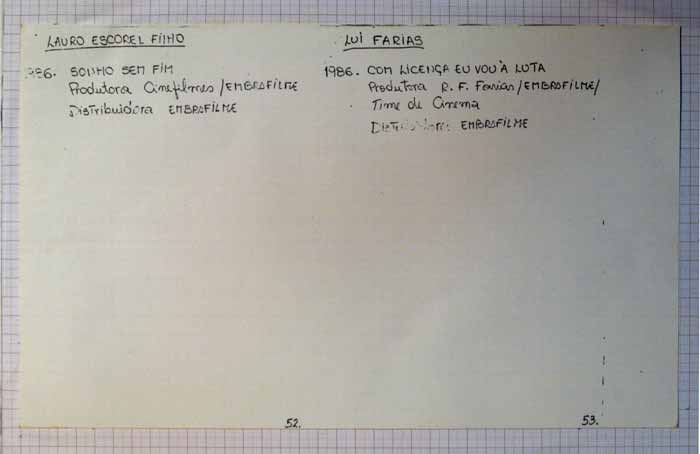 LAURO ESCOREL FILHO
986. SONHO SEM FIM
Produtora Cinefilmes / EMBRAFILME
Distribuidora EMBRAFILME
52.
LUI FARIAS
1986. COM LICENÇA EU VOU À LUTA
Produtora R. F. Farias / EMBRAFILME /
Time de Cinema
Distribuidora EMBRAFILME
53.